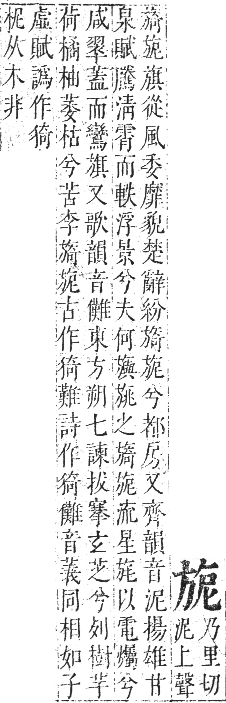 旎
乃里切
泥上聲
旖旎旗從風委靡貌楚辭紛旖旎兮都房又齊韻音泥揚雄甘
泉賦騰清霄而軼浮景兮夫何旟旐之旖旎流星旄以電爥兮
咸翠蓋而鸞旗又歌韻音儺東方朔七諫拔搴玄芝兮列樹芋
荷橘柚萎枯兮苦李旖旎古作猗難詩作猗儺音義同相如子
虛賦譌作猗
柅从木非